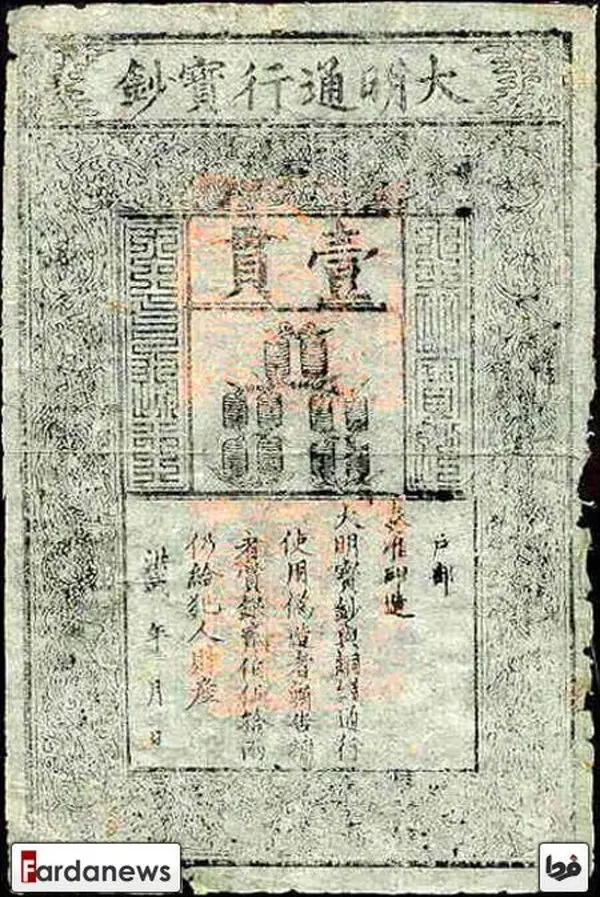 大明通行寶鈔
壹貫
户部
奏准印造
大明寶鈔與銅錢通行
使用偽造者斬告捕
者賞銀貳伯伍拾兩
仍給犯人財產
洪武 年 月 日
Fardanews
فردا